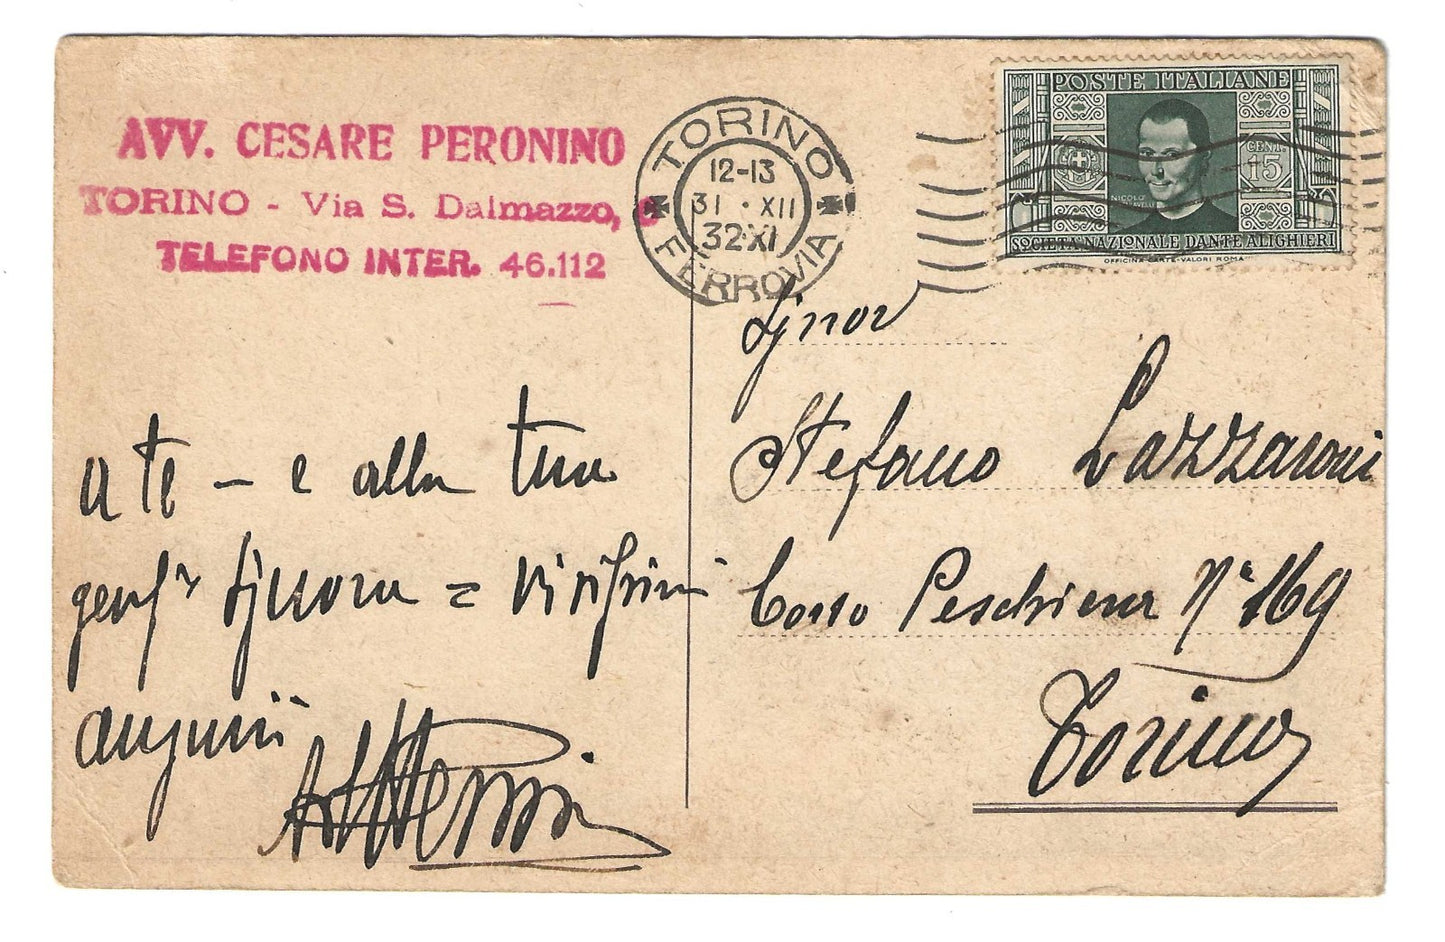 AVV. CESARE PERONINO
TORINO - Via S. Dalmazzo,
TELEFONO INTER. 46.112
TORINO
12-13
31 · XII
32·XI
FERROVIA
POSTE ITALIANE
CENT.
15
NICOLÒ
SOCIETÀ NAZIONALE DANTE ALIGHIERI
OFFICINA CARTE-VALORI ROMA
a te - e alla tua
gent.ma signora = vivissimi
auguri
Signor
Stefano Lazzaroni
Corso Peschiera N° 169
Torino